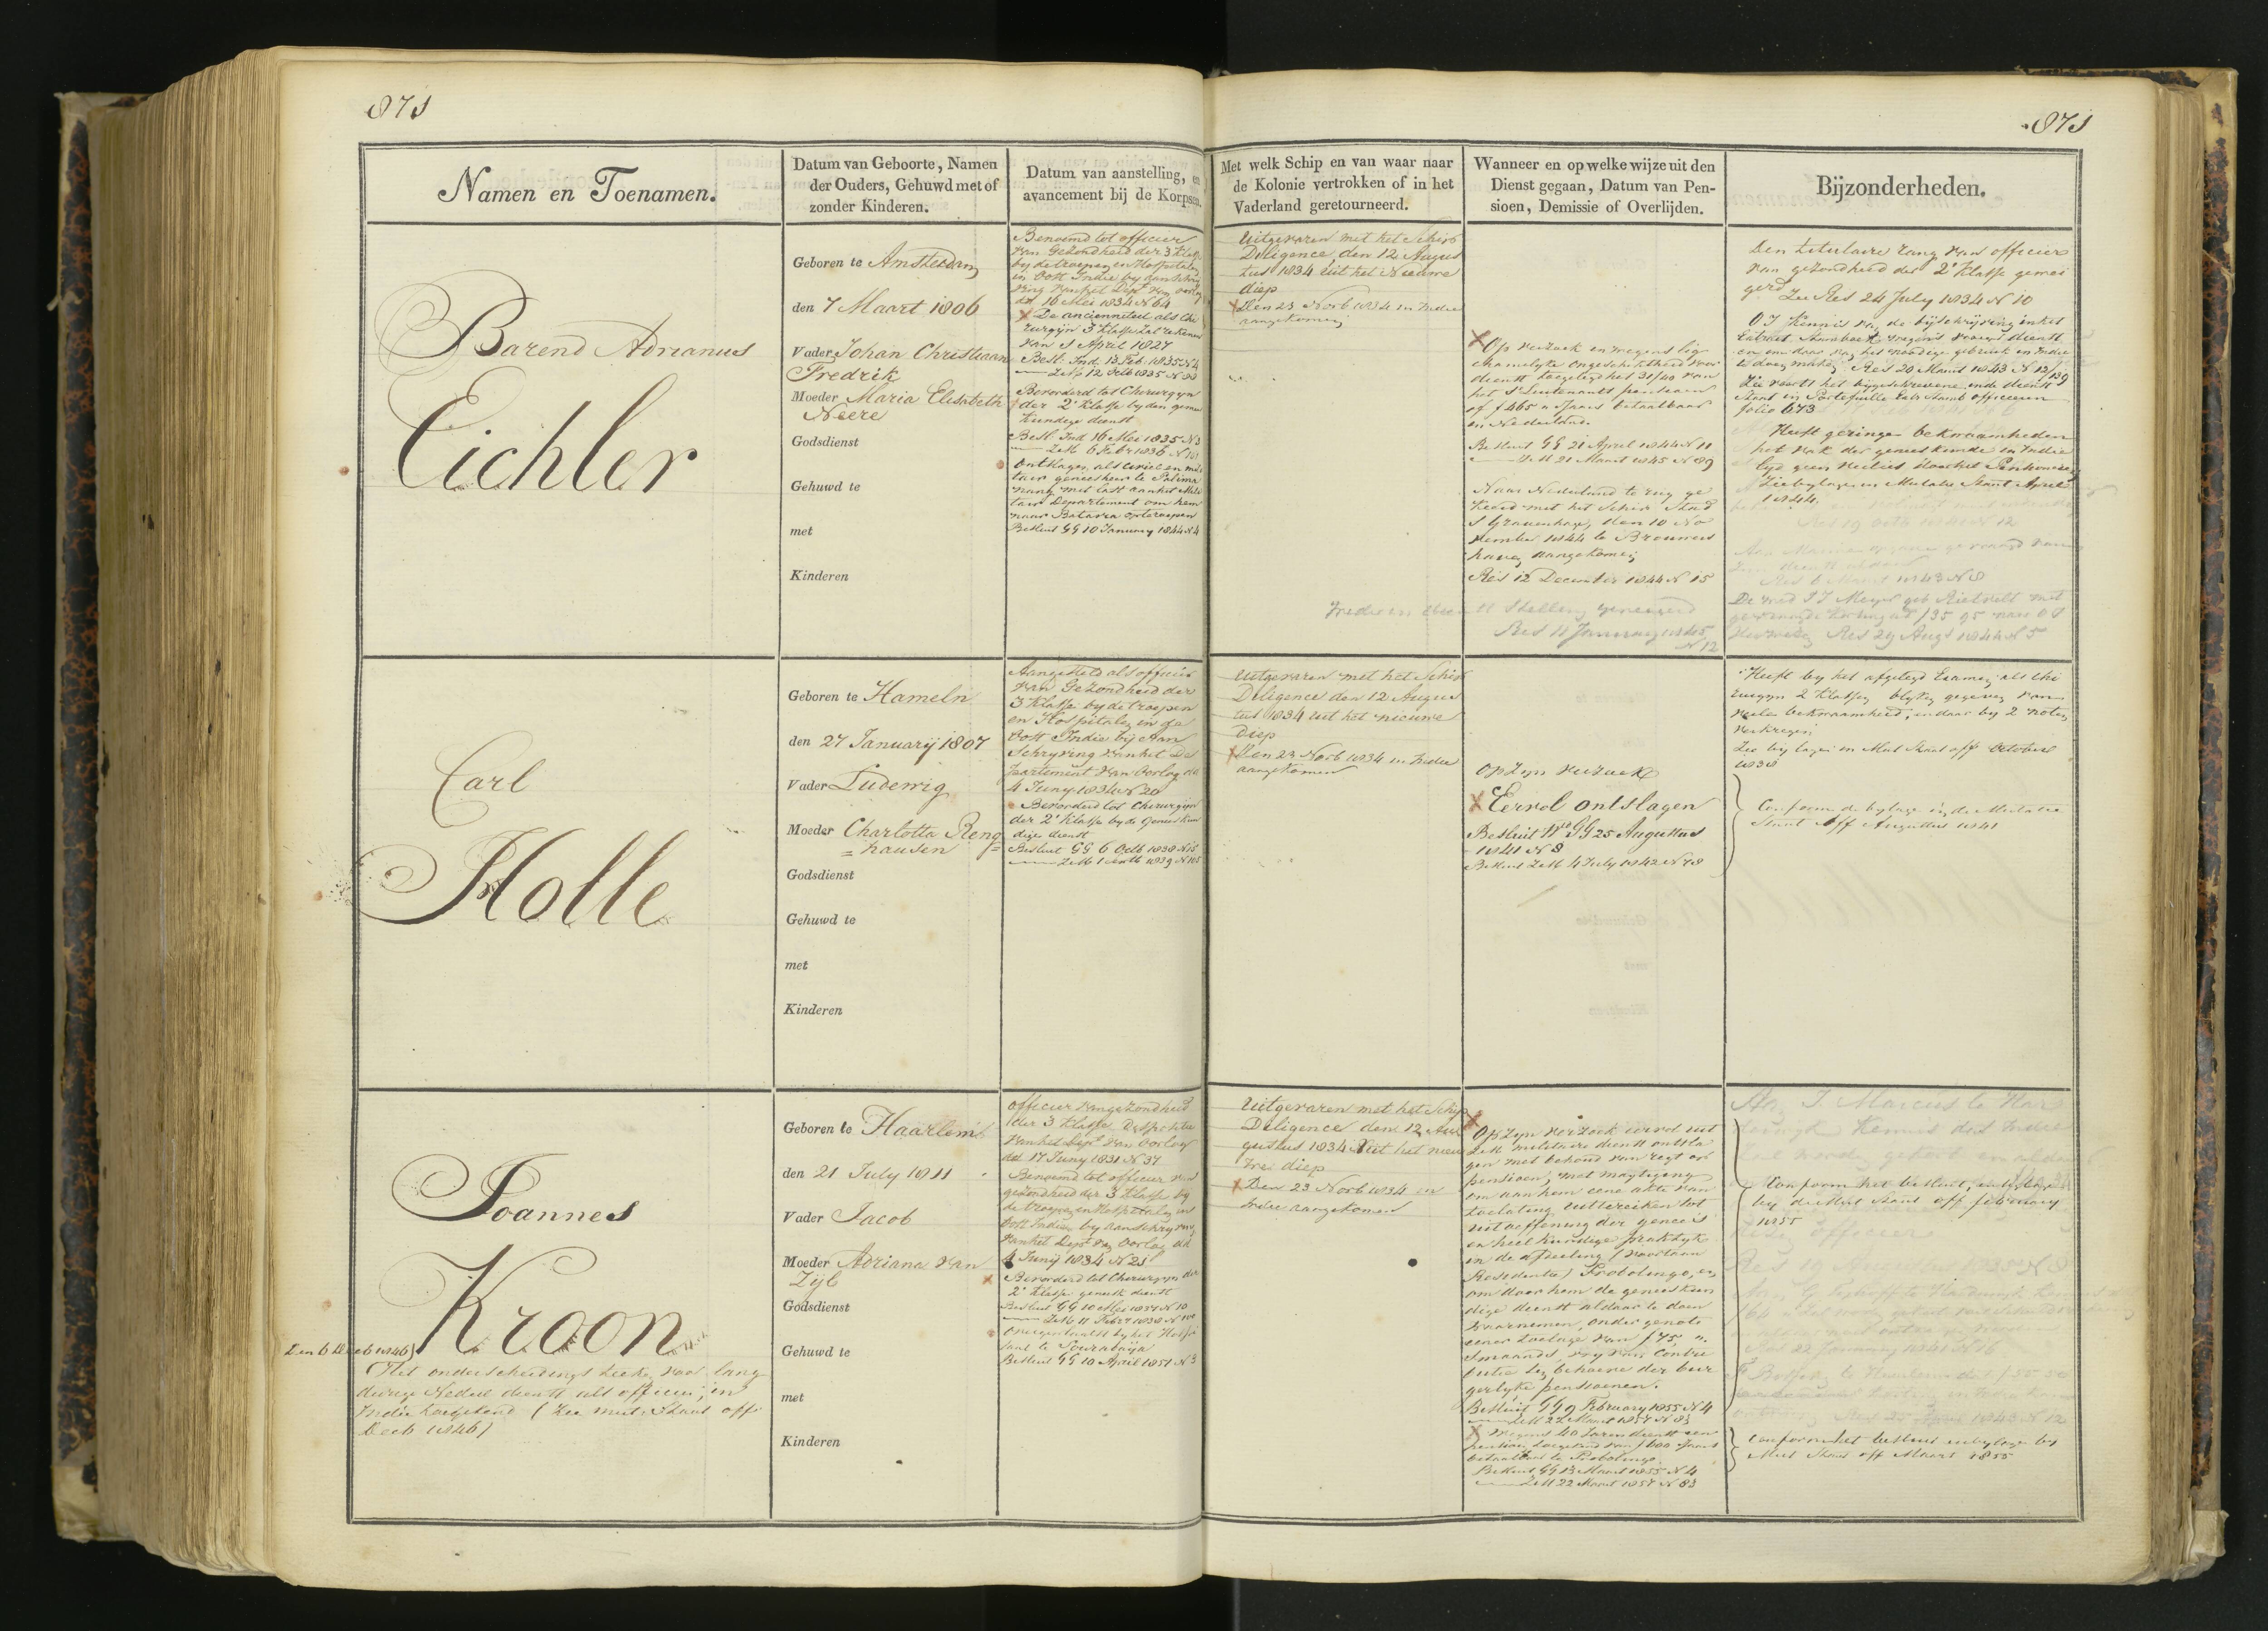 871
871
Namen en Toenamen.
Datum van Geboorte, Namen
der Ouders, Gehuwd met of
zonder Kinderen.
Datum van aanstelling, en
avancement bij de Korpsen.
Met welk Schip en van waar naar
de Kolonie vertrokken of in het
Vaderland geretourneerd.
Wanneer en op welke wijze uit den
Dienst gegaan, Datum van Pen-
sioen, Demissie of Overlijden.
Bijzonderheden.
Barend Adrianus
Eichler
Geboren te Amsterdam
den 7 Maart 1806
Vader Johan Christiaan
Fredrik
Moeder Maria Elisabeth
Neere
Godsdienst
Gehuwd te
met
Kinderen
Benoemd tot officier
van Gezondheid der 3 Klasse
by de troepen en Hospitalen
in Oost Indie by aanschry
ving van het Dept van oorlog
dd 16 Mei 1834 N 64
De ancienneteit als Chi
rurgyn 3 Klasse zal rekenen
van 1 April 1827
Besl. Ind. 13 Feb. 1835 N 4
Bevorderd tot Chirurgyn
der 2e Klasse by den genees
kundige dienst
Besl Ind 16 Mei 1835 N 3
Ontslagen als civiel en mili
tair geneesheer te Palima
nang met last aan het Mili
tair Departement om hem
naar Batavia opteroepen
Besluit GG 10 January 1844 N 4
Uitgevaren met het Schip
Diligence den 12 Augus
tus 1834 uit het Nieuwe
diep
Den 23 Novb 1834 in Indie
aangekomen
Op verzoek en wegens lig
chamelyke ongeschiktheid voor
dienst toegelegd het 31/40 van
het 1e Luitenants pensioen
of f 465 's Jaars betaalbaar
in Nederland.
Besluit GG 21 April 1844 N 11
ZeM 21 Maart 1845 N 89
Naar Nederland te rug ge
keerd met het Schip Stad
S Gravenhage, den 10 No
vember 1844 te Brouwers
haven aangekomen
Res 12 December 1844 N 15
Stelling
Res 11 January 1845
N 12
Den titulaire rang van officier
van gezondheid der 2e Klasse gewei
gerd
Zie Res 24 July 1834 N 10
OI Kennis van de bijschryving in het
Extract Stamboek wegens vroegere dienst
en om daar van het noodige gebruik in Indie
te doen maken Res 20 Maart 1843 N 13/139
folio 673
Heeft geringe bekwaamheden
het vak der geneeskunde in Indie
Zie bylage in Mutatie Staat April
1844
Res 6 Maart 1843 N 8
Res 29 Augs 1844 N 5
Carl
Holle
Geboren te Hameln
den 27 January 1807
Vader Ludewig
Moeder Charlotta Reng
= hausen =
Godsdienst
Gehuwd te
met
Kinderen
Aangesteld als officier
van Gezondheid der
3 Klasse by de troepen
en Hospitalen in de
Oost Indie bij Aan
schryving van het De
partement van Oorlog dd
4 Juny 1834 N 20
Bevorderd tot Chirurgijn
der 2e Klasse by de Geneeskun
dige dienst
Besluit GG 6 Octb 1838 N 15
Uitgevaren met het Schip
Diligence den 12 Augus
tus 1834 uit het nieuwe
diep
Den 23 Novb 1834 in Indie
aangekomen
Op zyn verzoek
Eervol ontslagen
Besluit GG 25 Augustus
1841 N 8
Besluit ZeM 4 July 1842 N 78
Heeft by het afgelegd Examen als Chi
rurgyn 2 Klasse, blyken gegeven van
veele bekwaamheid, en daar by 2 noten
verkregen
Zie bylagen in Mut Staat off October
1838
Conform de bylage in de Mutatie
Staat Off Augustus 1841
Joannes
Kroon
Den 6 Decb 1846
Het onderscheidings teeken voor lang
durige Nederl dienst als officier; in
Indie toegekend (Zie mut: Staat off
Decb 1846)
Geboren te Haarlem
den 21 July 1811
Vader Jacob
Moeder Adriana van
Zijl
Godsdienst
Gehuwd te
met
Kinderen
officier van gezondheid
der 3 Klasse Dispositie
van het Dept van Oorlog
dd 17 Juny 1831 N 37
Benoemd tot officier van
gezondheid der 3 Klasse by
de troepen en Hospitalen in
Oost Indie, by aanschryving
van het Dept van Oorlog dd
4 Junij 1834 N 21
Bevorderd tot Chirurgyn der
2e Klasse geneesk dienst
Besluit GG 10 Mei 1837 N 10
Overgeplaatst by het Hospi
taal te Sourabaija
Besluit GG 10 April 1851 N 3
Uitgevaren met het Schip
Diligence den 12 Au
gustus 1834 uit het nieu
we diep
Den 23 Novb 1834 in
Indie aangekomen
Op zyn verzoek eervol uit
ZeM militaire dienst ontsla
gen met behoud van regt op
pensioen, met magtiging
om aan hem eene akte van
toelating uittereiken tot
uitoeffening der genees
en heelkundige praktyk
in de afdeeling (voortaan
Residentie) Probolingo, en
om door hem de geneeskun
dige dienst aldaar te doen
waarnemen, onder genot
eener toelage van f 75 "
smaands vry van Contri
butie ten behoeve der bur
gerlyke pensioenen.
Besluit GG 9 February 1855 N 4
ZeM 22 Maart 1857 N 83
wegens 40 Jaren dienst een
pensioen toegekend van f 1600 'sJaars
betaalbaar te Probolingo
Besluit GG 13 Maart 1855 N 4
ZeM 22 Maart 1857 N 83
Conform het besluit, in bylage
by de Mut Staat off february
1855
Conform het besluit in bylage by
Mut Staat off Maart 1855